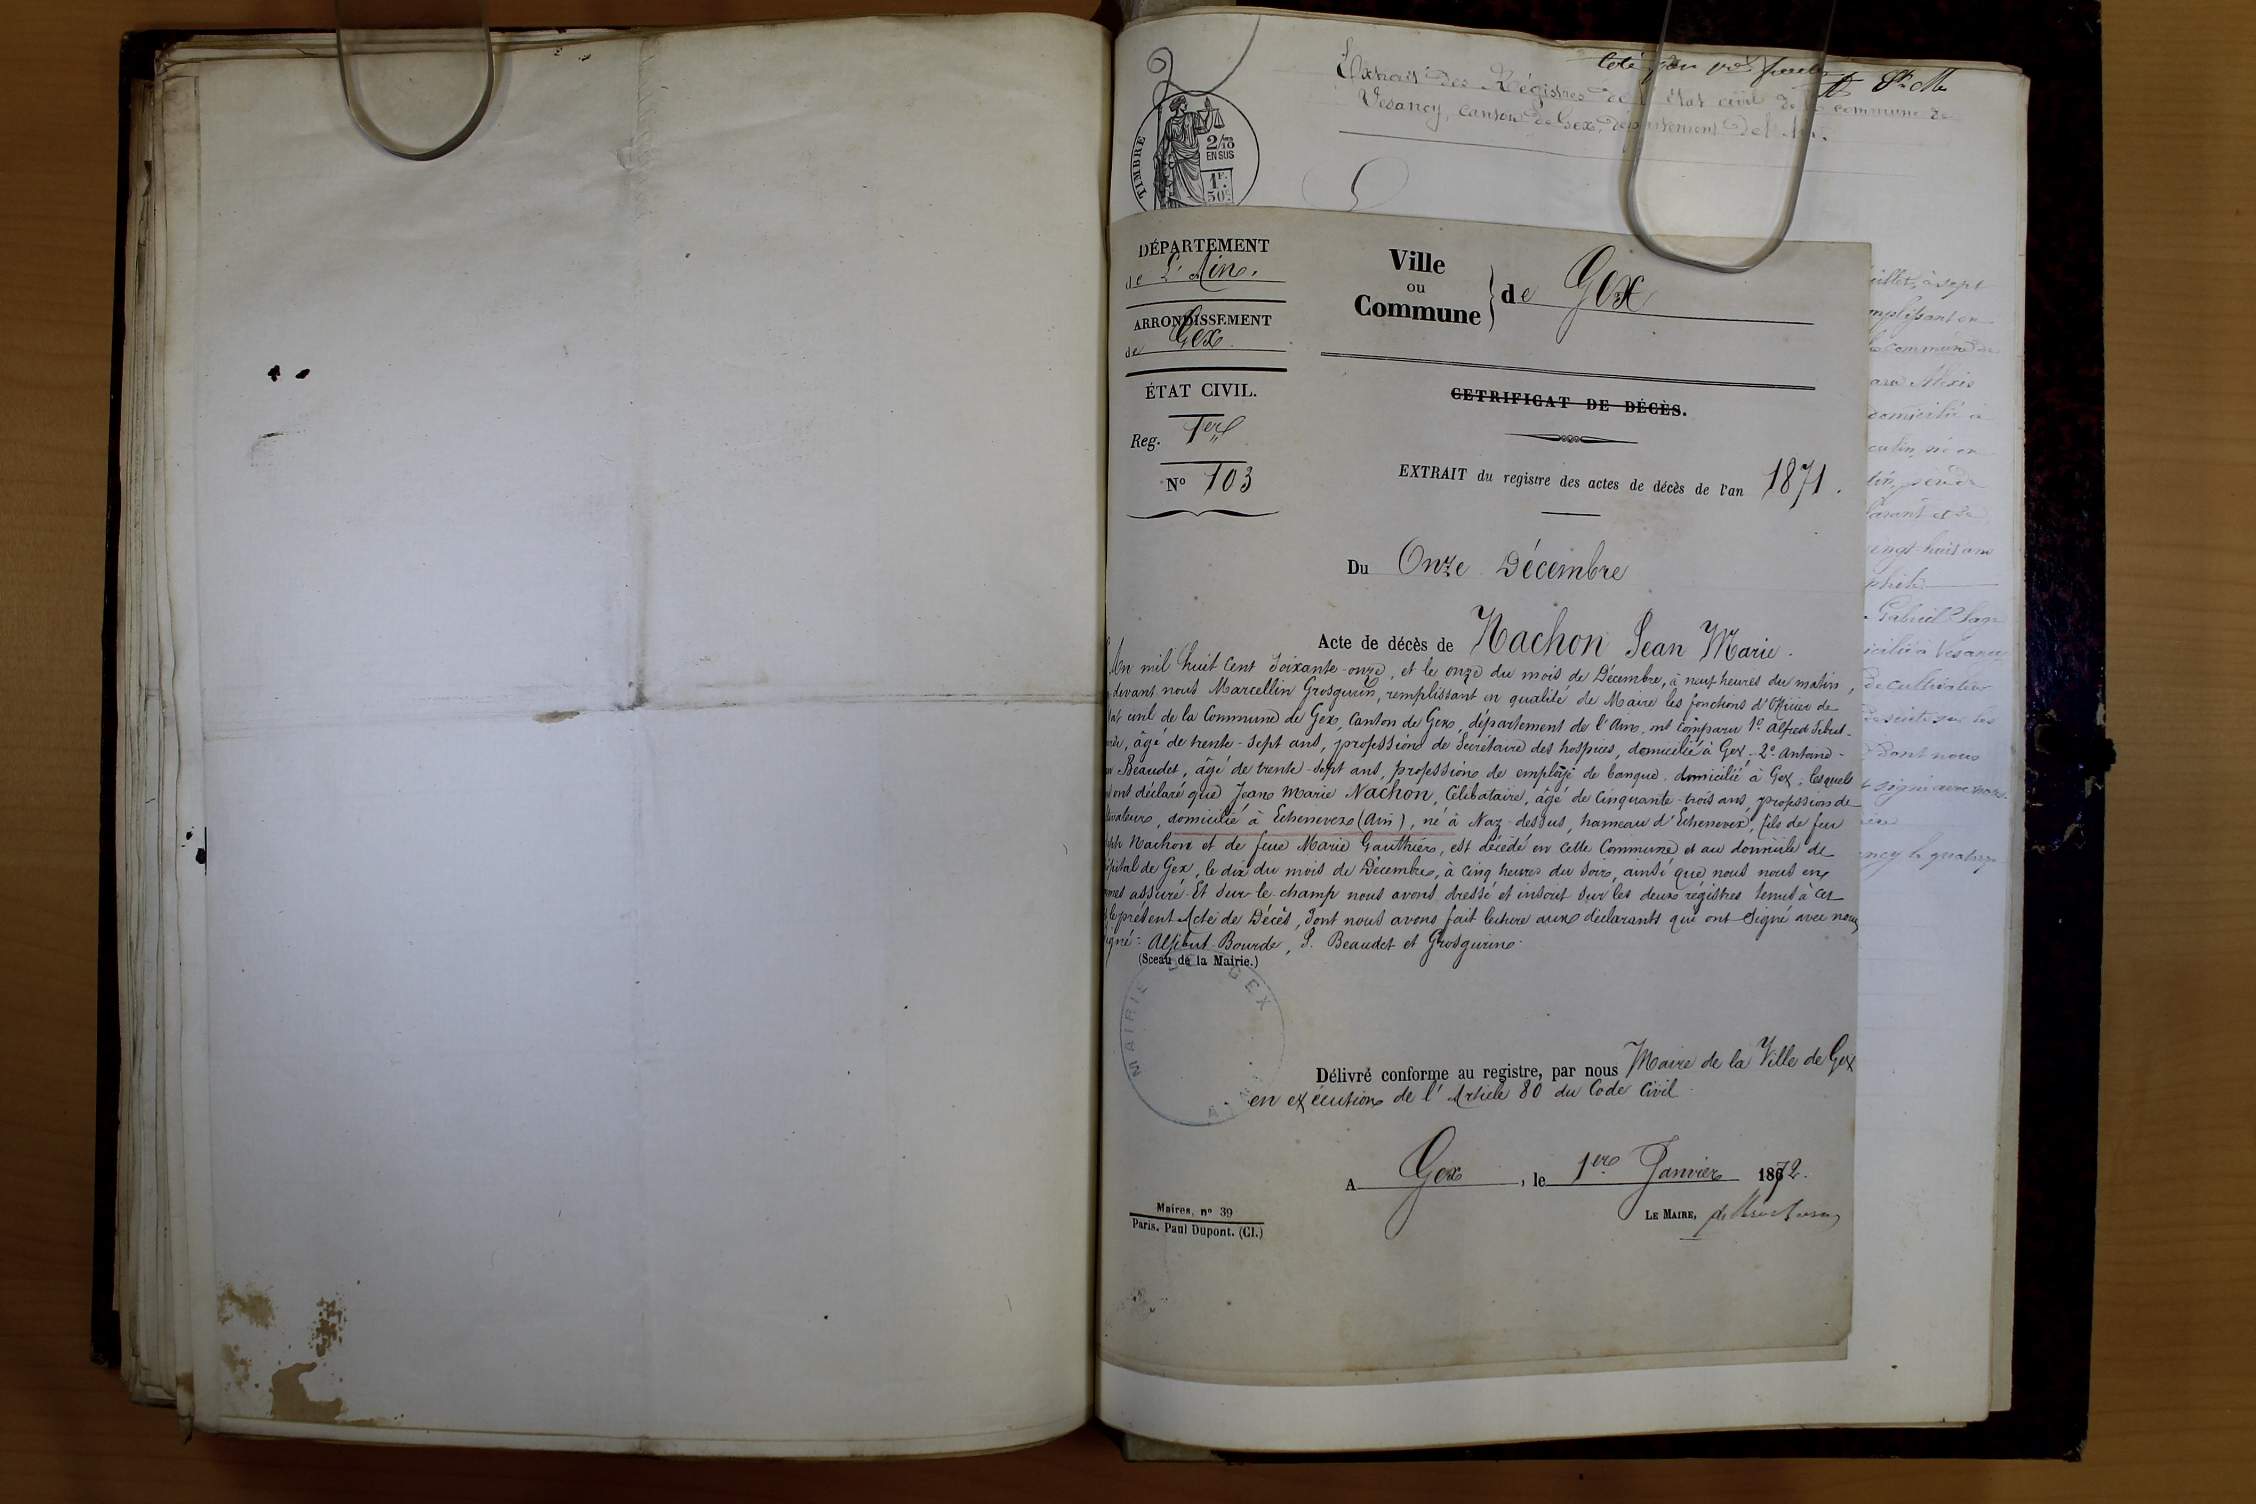 Coté
Extrait des Régistres de l'état civil de la commune de
Vesancy, canton de Gex, département de l'Ain.
TIMBRE
2/10
EN SUS
1F.
50c.
DÉPARTEMENT
de L'Ain.
ARRONDISSEMENT
de Gex
ÉTAT CIVIL.
Reg. 1er
No 103
Ville
ou
Commune
de Gex
CETRIFICAT DE DÉCÈS.
EXTRAIT du registre des actes de décès de l'an 1871.
Du Onze Décembre
Acte de décès de Nachon Jean Marie.
An mil huit cent soixante-onze, et le onze du mois de Décembre, à neuf heures du matin,
devant nous Marcellin Grosgurin, remplissant en qualité de Maire les fonctions d'Officier de
état civil de la Commune de Gex, Canton de Gex, département de l'Ain, ont comparu 1o Alfred
âgé de trente-sept ans, profession de Secrétaire des hospices, domicilié à Gex, 2o Antoine-
Beaudet, âgé de trente-sept ans, profession de employé de banque, domicilié à Gex, lesquels
ont déclaré que Jean Marie Nachon, Célibataire, âgé de cinquante-trois ans, profession de
ltivateur, domicilié à Echenevex (Ain), né à Naz-dessus, hameau d'Echenevex, fils de feu
seph Nachon et de feue Marie Gauthier, est décédé en cette Commune et au domicile de
ôpital de Gex, le dix du mois de Décembre, à cinq heures du soir, ainsi que nous nous en
mmes assuré. Et sur-le-champ nous avons dressé et inscrit sur les deux régistres tenus à cet
le présent Acte de Décès, dont nous avons fait lecture aux déclarants qui ont signé avec nous
signé: Bourde, Beaudet et Grosgurin.
(Sceau de la Mairie.)
MAIRIE DE GEX
AIN
Délivré conforme au registre, par nous Maire de la Ville de Gex
en exécution de l'Article 80 du Code Civil.
A Gex, le 1er Janvier 1872.
LE MAIRE,
Maires, no 39
Paris. Paul Dupont. (Cl.)
uillet, à sept
mplissant en
la commune de
Alexis
domicilié à
né en
vingt-huit ans
Gabriel
icilié à Vesancy
de cultivateur
dont nous
signé avec nous
ncy le quatorze